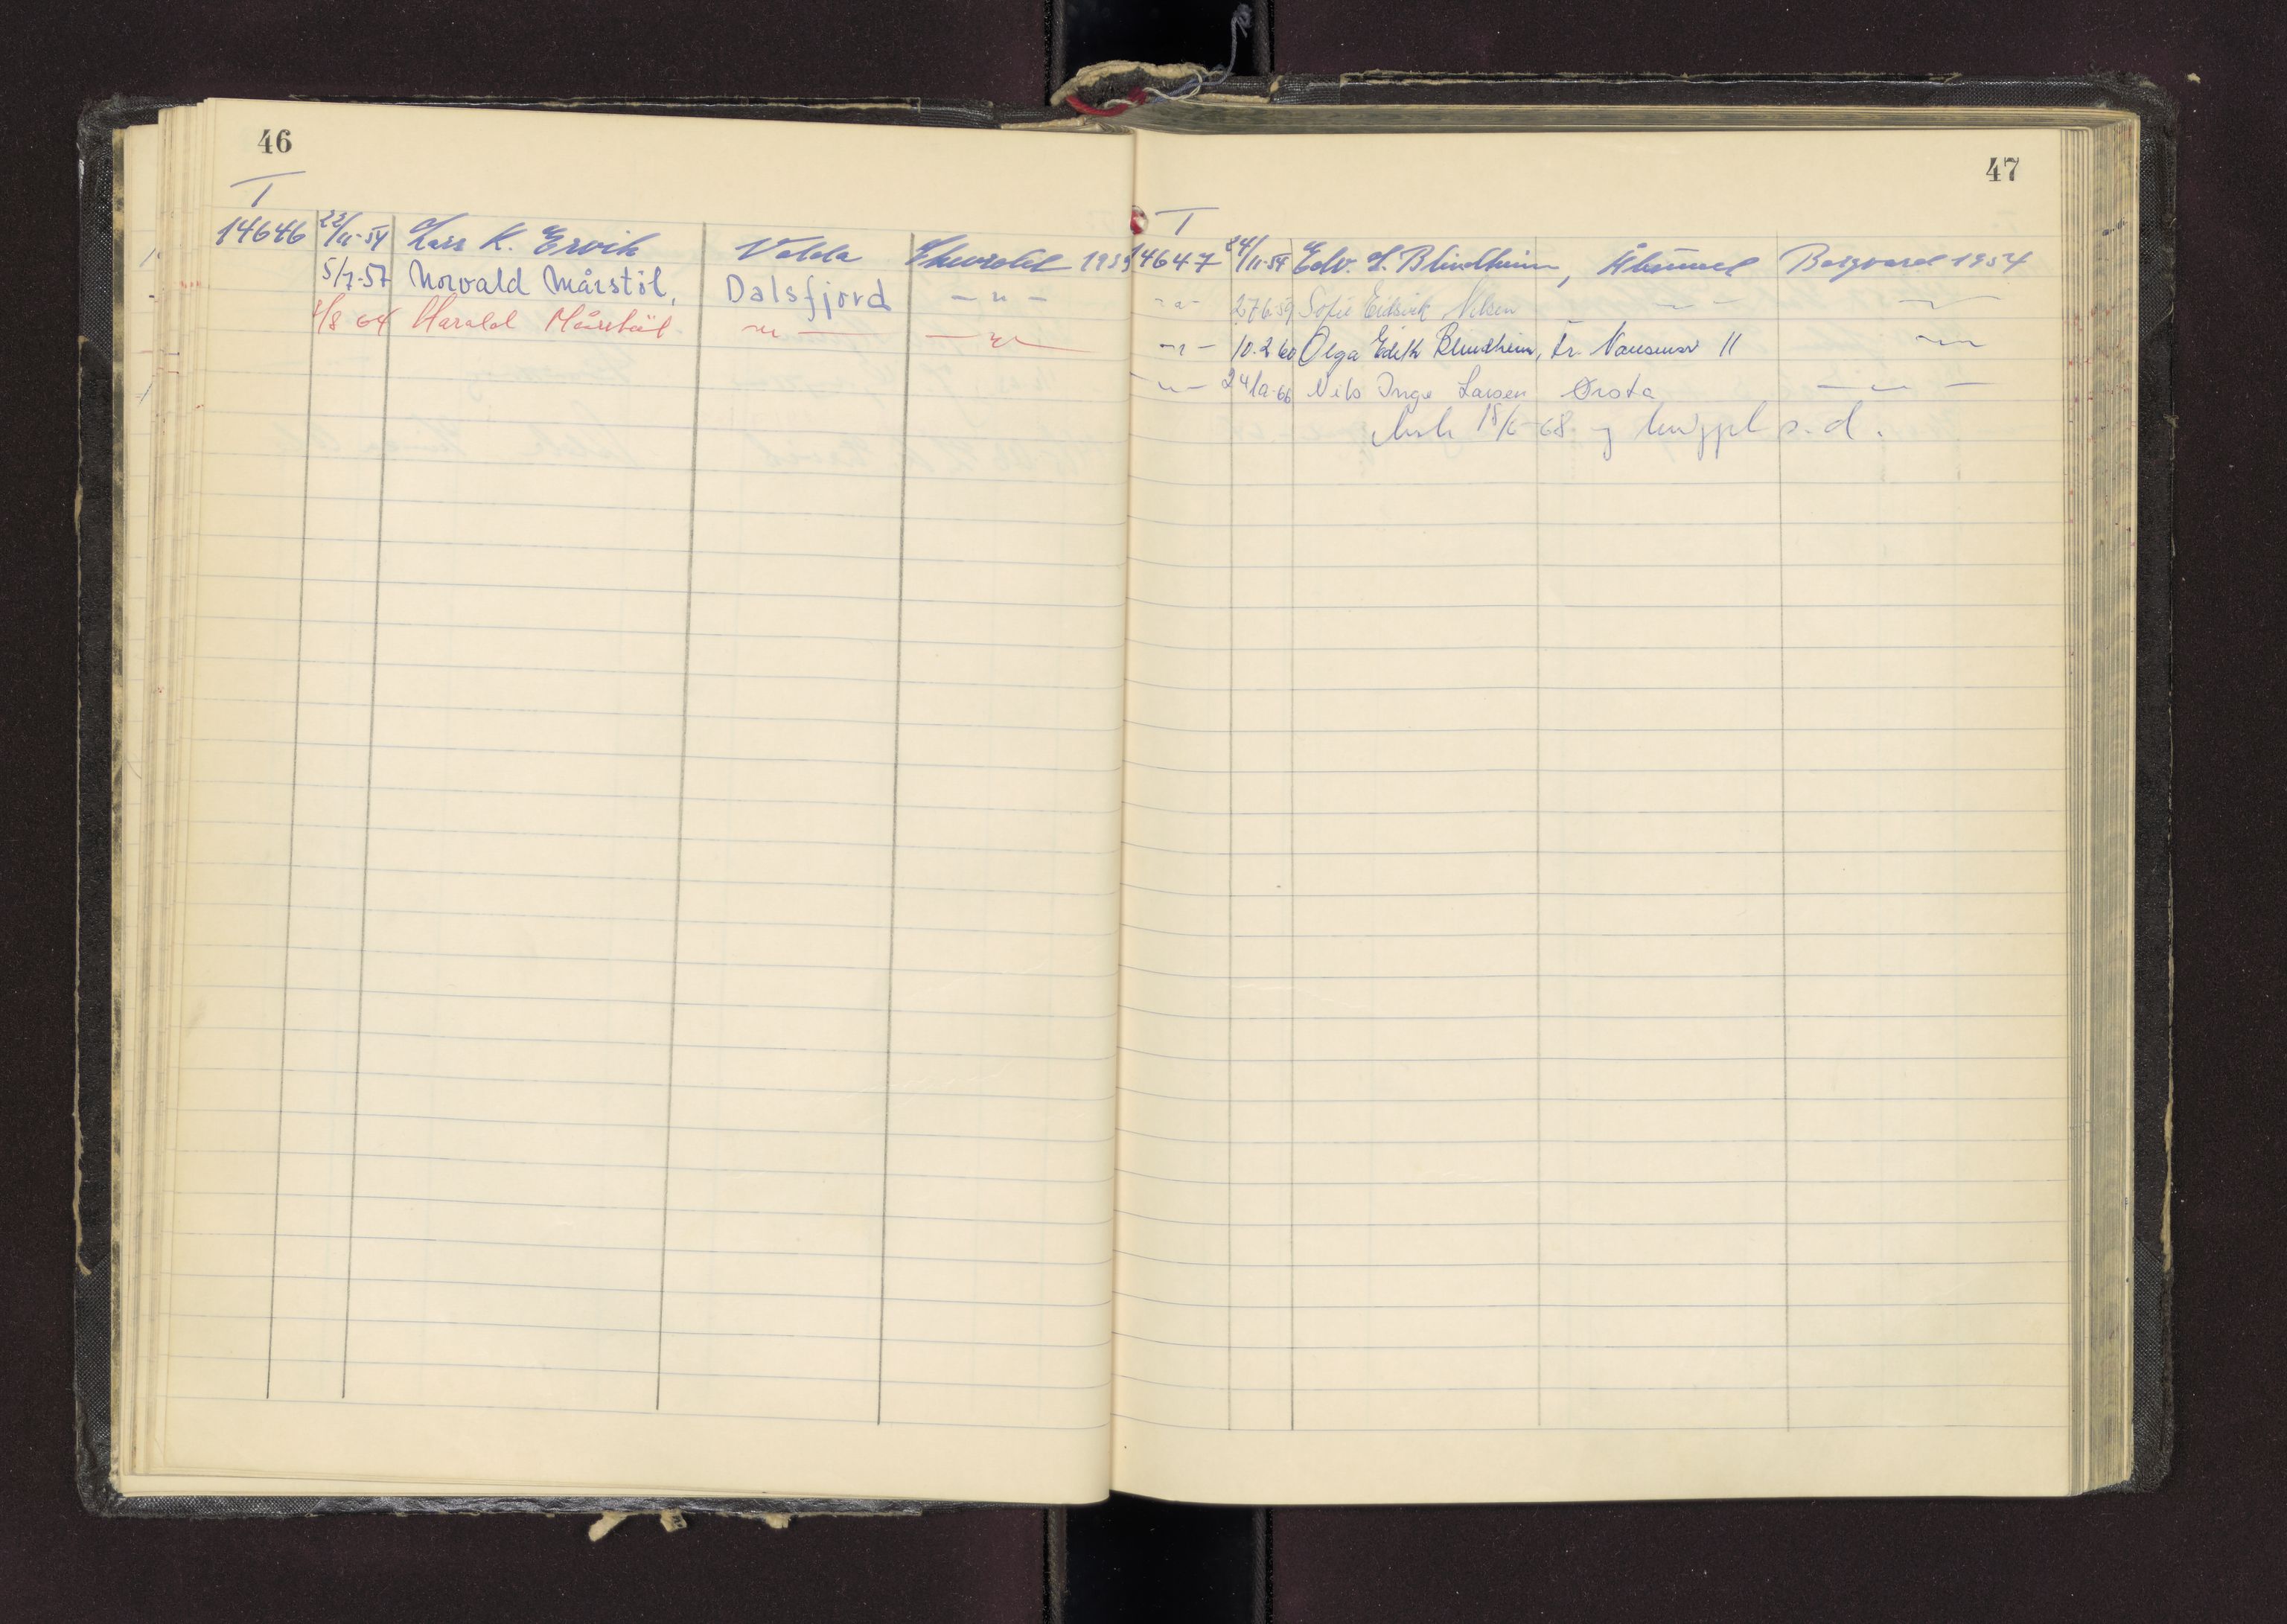 46
T
14646 22/11-54 Lars K. Ervik Volda Chevrolet 1939
5/7-57 Norvald Mårstöl, Dalsfjord -"-
/8 64 Harald Mårstöl -"- -"-
47
T
14647 24/11-54 Edv. L. Blindheim, Ålesund Borgward 1954
-"- 27.6.59 Sofie Eidsvik Nilsen -"- -"-
-"- 10.2.60 Olga Edith Blindheim, Fr. Nansensv 11 -"-
-"- 24/10-66 Nils Inge Larsen Ørsta -"-
18/6-68 s.d.